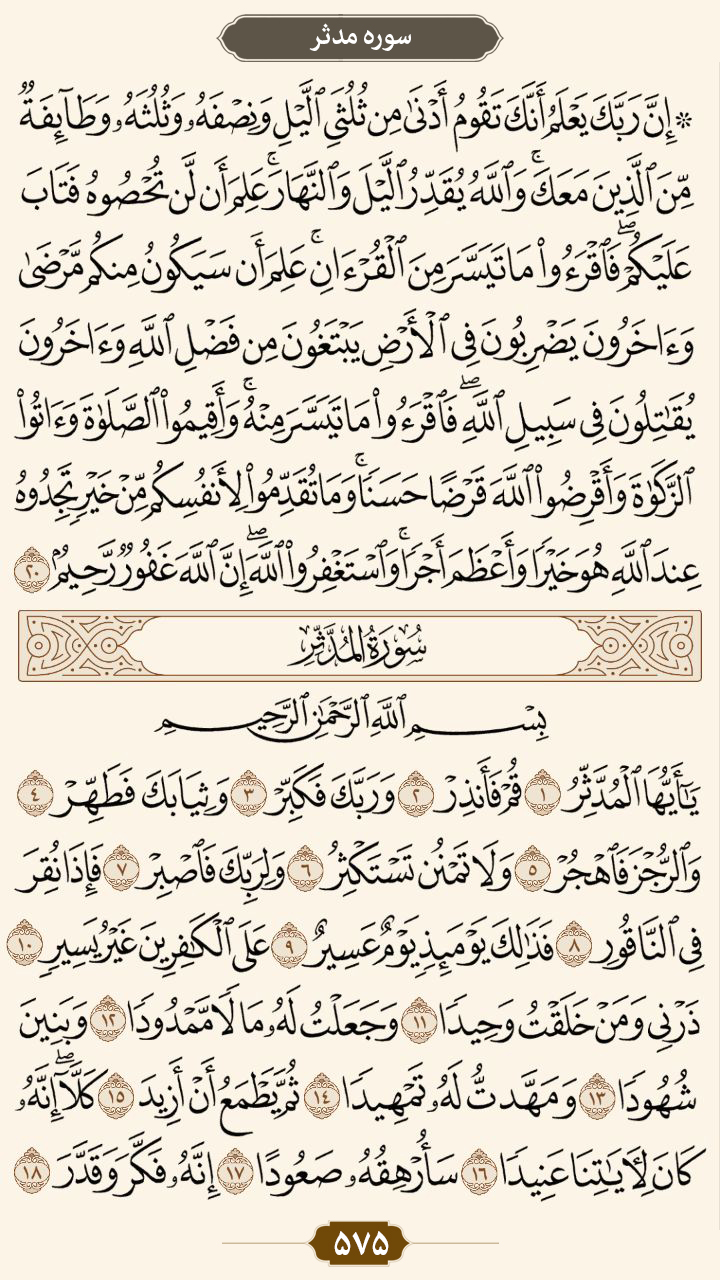 سوره مدثر
۞ إِنَّ رَبَّكَ يَعْلَمُ أَنَّكَ تَقُومُ أَدْنَىٰ مِن ثُلُثَيِ ٱلَّيْلِ وَنِصْفَهُۥ وَثُلُثَهُۥ وَطَآئِفَةٌ
مِّنَ ٱلَّذِينَ مَعَكَ ۚ وَٱللَّهُ يُقَدِّرُ ٱلَّيْلَ وَٱلنَّهَارَ ۚ عَلِمَ أَن لَّن تُحْصُوهُ فَتَابَ
عَلَيْكُمْ ۖ فَٱقْرَءُوا۟ مَا تَيَسَّرَ مِنَ ٱلْقُرْءَانِ ۚ عَلِمَ أَن سَيَكُونُ مِنكُم مَّرْضَىٰ
وَءَاخَرُونَ يَضْرِبُونَ فِى ٱلْأَرْضِ يَبْتَغُونَ مِن فَضْلِ ٱللَّهِ وَءَاخَرُونَ
يُقَٰتِلُونَ فِى سَبِيلِ ٱللَّهِ ۖ فَٱقْرَءُوا۟ مَا تَيَسَّرَ مِنْهُ ۚ وَأَقِيمُوا۟ ٱلصَّلَوٰةَ وَءَاتُوا۟
ٱلزَّكَوٰةَ وَأَقْرِضُوا۟ ٱللَّهَ قَرْضًا حَسَنًا ۚ وَمَا تُقَدِّمُوا۟ لِأَنفُسِكُم مِّنْ خَيْرٍ تَجِدُوهُ
عِندَ ٱللَّهِ هُوَ خَيْرًا وَأَعْظَمَ أَجْرًا ۚ وَٱسْتَغْفِرُوا۟ ٱللَّهَ ۖ إِنَّ ٱللَّهَ غَفُورٌ رَّحِيمٌۢ ٢٠
سُورَةُ المُدَّثِّرِ
بِسْمِ ٱللَّهِ ٱلرَّحْمَٰنِ ٱلرَّحِيمِ
يَٰٓأَيُّهَا ٱلْمُدَّثِّرُ ١ قُمْ فَأَنذِرْ ٢ وَرَبَّكَ فَكَبِّرْ ٣ وَثِيَابَكَ فَطَهِّرْ ٤
وَٱلرُّجْزَ فَٱهْجُرْ ٥ وَلَا تَمْنُن تَسْتَكْثِرُ ٦ وَلِرَبِّكَ فَٱصْبِرْ ٧ فَإِذَا نُقِرَ
فِى ٱلنَّاقُورِ ٨ فَذَٰلِكَ يَوْمَئِذٍ يَوْمٌ عَسِيرٌ ٩ عَلَى ٱلْكَٰفِرِينَ غَيْرُ يَسِيرٍ ١٠
ذَرْنِى وَمَنْ خَلَقْتُ وَحِيدًا ١١ وَجَعَلْتُ لَهُۥ مَالًا مَّمْدُودًا ١٢ وَبَنِينَ
شُهُودًا ١٣ وَمَهَّدتُّ لَهُۥ تَمْهِيدًا ١٤ ثُمَّ يَطْمَعُ أَنْ أَزِيدَ ١٥ كَلَّآ ۖ إِنَّهُۥ
كَانَ لِءَايَٰتِنَا عَنِيدًا ١٦ سَأُرْهِقُهُۥ صَعُودًا ١٧ إِنَّهُۥ فَكَّرَ وَقَدَّرَ ١٨
۵۷۵